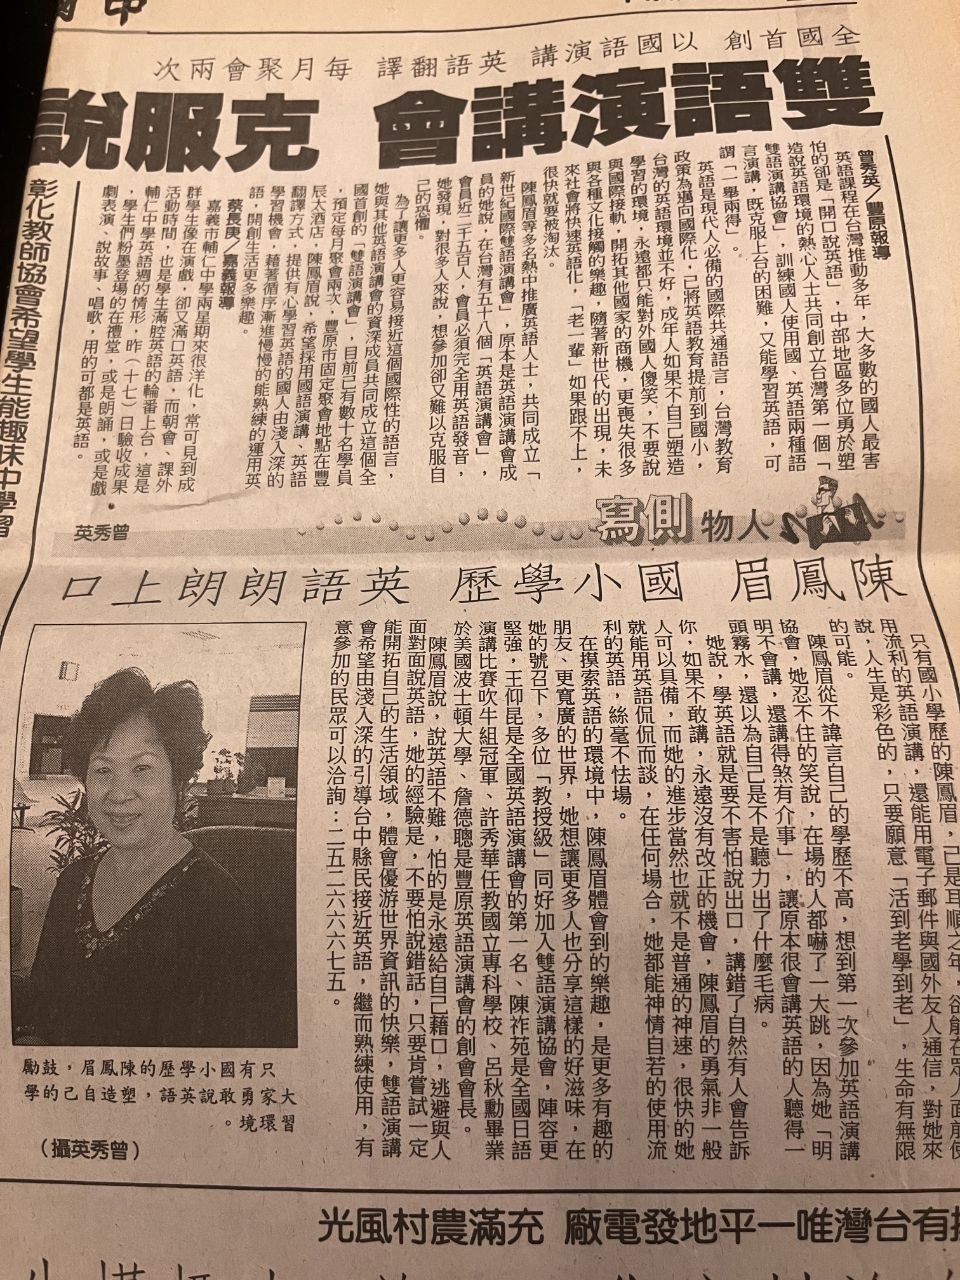 全國首創 以國語演講 英語翻譯 每月聚會兩次
雙語演講會 克服說
曾秀英/豐原報導
英語課程在台灣推動多年,大多數的國人最害
怕的卻是「開口說英語」,中部地區多位勇於塑
造說英語環境的熱心人士共同創立台灣第一個「
雙語演講協會」,訓練國人使用國、英語兩種語
言演講,既克服上台的困難,又能學習英語,可
謂「一舉兩得」。
英語是現代人必備的國際共通語言,台灣教育
政策為邁向國際化,已將英語教育提前到國小,
台灣的英語環境並不好,成年人如果不自己塑造
學習的環境,永遠都只能對外國人傻笑,不要說
與國際接軌,開拓其他國家的商機,更喪失很多
與各種文化接觸的樂趣,隨著新世代的出現,未
來社會將快速英語化,「老一輩」如果跟不上,
很快就要被淘汰。
陳鳳眉等多名熱中推廣英語人士,共同成立「
新世紀國際雙語演講會」,原本是英語演講會成
員的她說,在台灣有五十八個「英語演講會」,
會員近二千五百人,會員必須完全用英語發音,
她發現,對很多人來說,想參加卻又難以克服自
己的恐懼。
為了讓更多人更容易接近這個國際性的語言,
她與其他英語演講會的資深成員共同成立這個全
國首創的「雙語演講會」,目前已有數十名學員
,預定每月聚會兩次,豐原市固定聚會地點在豐
辰太酒店,陳鳳眉說,希望採用國語演講、英語
翻譯方式,提供有心學習英語的國人由淺入深的
學習機會,藉著循序漸進慢慢的能熟練的運用英
語,開創生活更多樂趣。
蔡長庚/嘉義報導
嘉義市輔仁中學兩星期來很洋化,常可見到成
群學生像在演戲,卻又滿口英語,而朝會、課外
活動時間,也是學生滿腔英語的輪番上台,這是
輔仁中學英語週的情形,昨(十七)日驗收成果
,學生們粉墨登場的在禮堂,或是朗誦,或是戲
劇表演、說故事、唱歌,用的可都是英語。
彰化教師協會希望學生能趣味中學習
人物側寫
曾秀英
陳鳳眉 國小學歷 英語朗朗上口
只有國小學歷的陳鳳眉,已是耳順之年,卻能在眾人面前使
用流利的英語演講,還能用電子郵件與國外友人通信,對她來
說,人生是彩色的,只要願意「活到老學到老」,生命有無限
的可能。
陳鳳眉從不諱言自己的學歷不高,想到第一次參加英語演講
協會,她忍不住的笑說,在場的人都嚇了一大跳,因為她「明
明不會講,還講得煞有介事」,讓原本很會講英語的人聽得一
頭霧水,還以為自己是不是聽力出了什麼毛病。
她說,學英語就是要不害怕說出口,講錯了自然有人會告訴
你,如果不敢講,永遠沒有改正的機會,陳鳳眉的勇氣非一般
人可以具備,而她的進步當然也就不是普通的神速,很快的她
就能用英語侃侃而談,在任何場合,她都能神情自若的使用流
利的英語,絲毫不怯場。
在摸索英語的環境中,陳鳳眉體會到的樂趣,是更多有趣的
朋友、更寬廣的世界,她想讓更多人也分享這樣的好滋味,在
她的號召下,多位「教授級」同好加入雙語演講協會,陣容更
堅強,王仰昆是全國英語演講會的第一名、陳祚苑是全國日語
演講比賽吹牛組冠軍、許秀華任教國立專科學校、呂秋勳畢業
於美國波士頓大學、詹德聰是豐原英語演講會的創會會長。
陳鳳眉說,說英語不難,怕的是永遠給自己藉口,逃避與人
面對面說英語,她的經驗是,不要怕說錯話,只要肯嘗試一定
能開拓自己的生活領域,體會優游世界資訊的快樂,雙語演講
會希望由淺入深的引導台中縣民接近英語,繼而熟練使用,有
意參加的民眾可以洽詢:二五二六六六七五。
只有國小學歷的陳鳳眉,鼓勵
大家勇敢說英語,塑造自己的學
習環境。
(曾秀英攝)
有台灣唯一平地發電廠 充滿農村風光